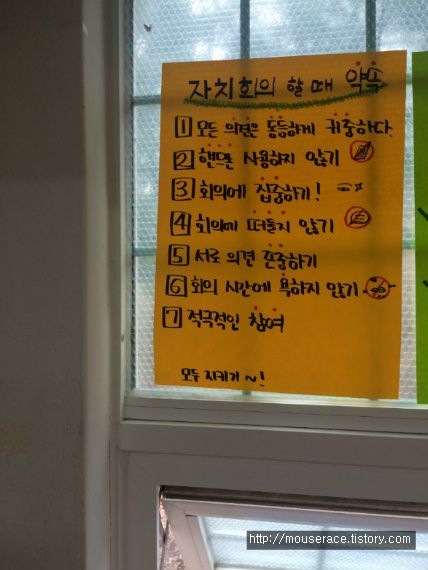 자치회의 할 때 약속
1 모든 의견은 동등하게 귀중하다.
2 핸드폰 사용하지 않기
3 회의에 집중하기!
4 회의에 떠들지 않기
5 서로 의견 존중하기
6 회의 시간에 욕하지 않기
7 적극적인 참여
모두 지키기 ~!
http://mouserace.tistory.com